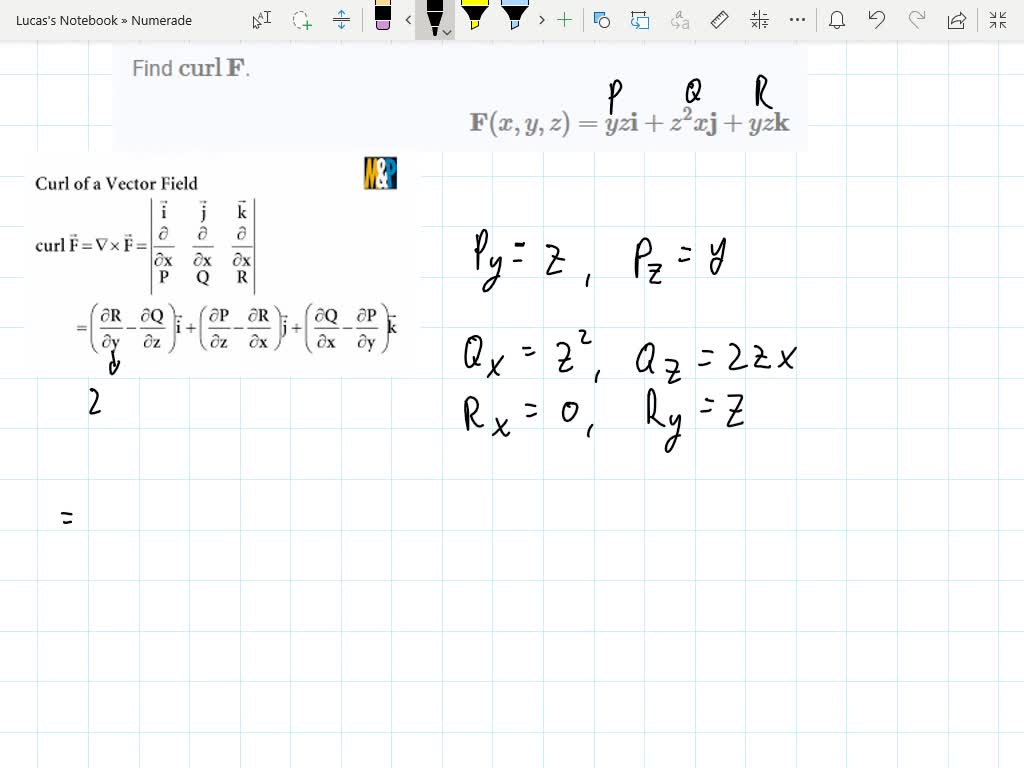 Lucas's Notebook » Numerade
Find curl F.
P Q R
F(x, y, z) = yzi + z²xj + yzk
Curl of a Vector Field
M&P
curl F⃗ = ∇ × F⃗ = | i⃗ j⃗ k⃗ |
∂/∂x ∂/∂x ∂/∂x
P Q R
= (∂R/∂y − ∂Q/∂z) i⃗ + (∂P/∂z − ∂R/∂x) j⃗ + (∂Q/∂x − ∂P/∂y) k⃗
Py = z, Pz = y
Qx = z², Qz = 2zx
Rx = 0, Ry = z
z
=